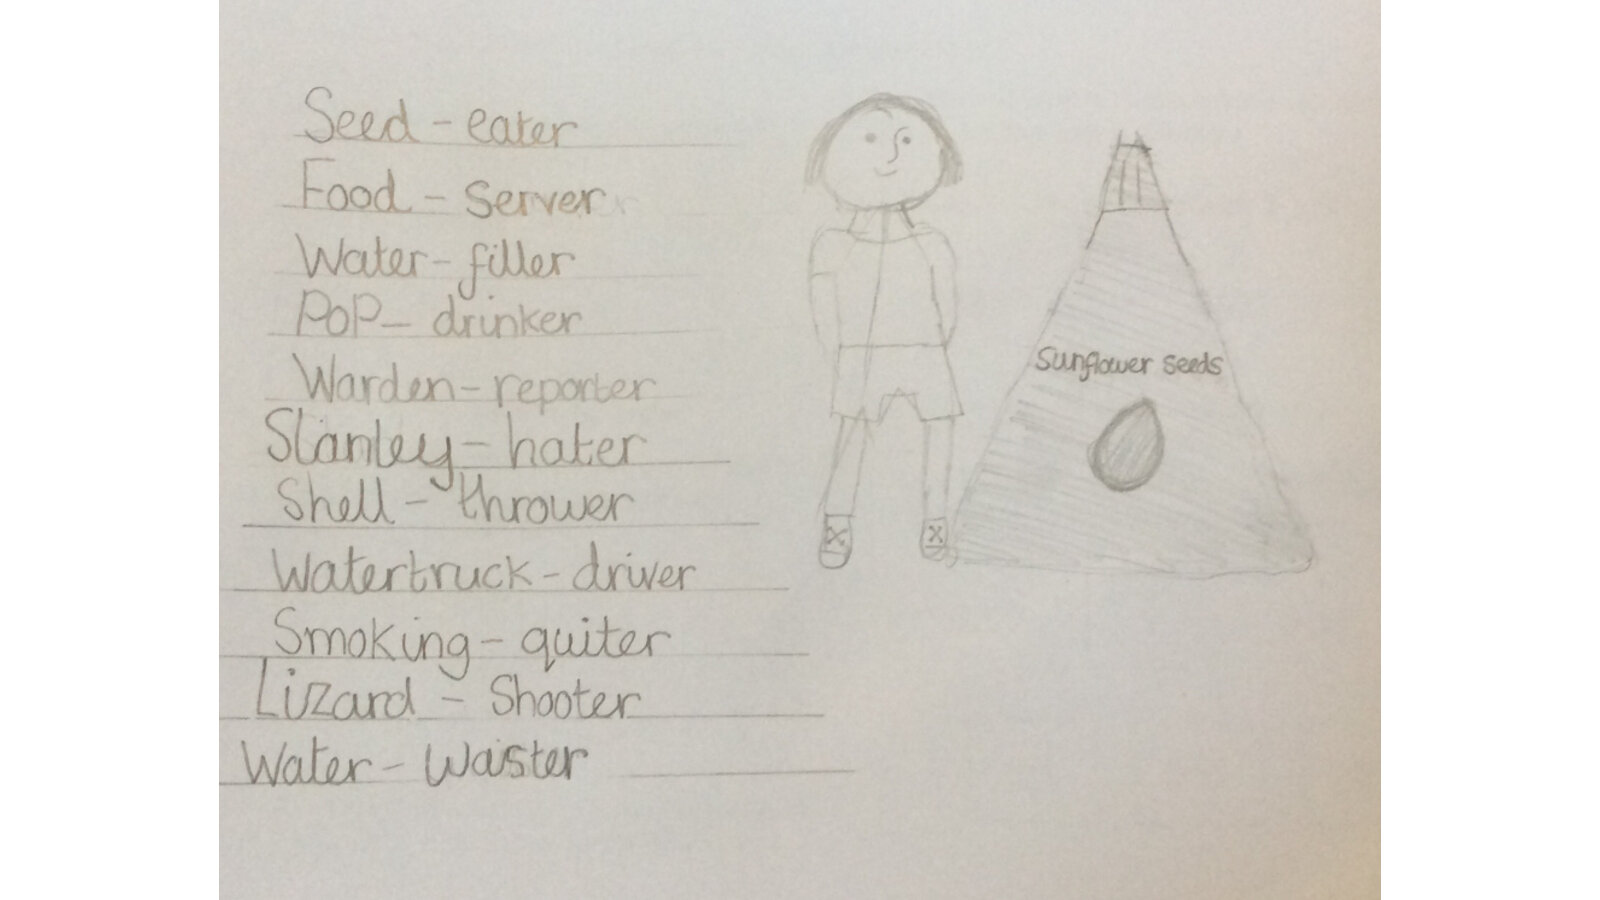 Seed - eater
Food - server
Water - filler
Pop - drinker
Warden - reporter
Stanley - hater
Shell - thrower
Watertruck - driver
Smoking - quiter
Lizard - Shooter
Water - waister
Sunflower seeds